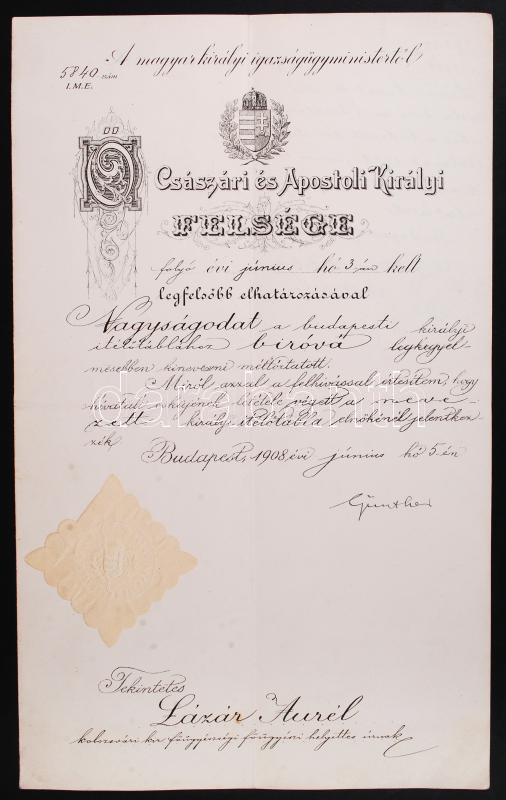 A magyar királyi igazságügyministertől
5840 szám
I.M.E.
Ő Császári és Apostoli Királyi
FELSÉGE
folyó évi június hó 3-án kelt
legfelsőbb elhatározásával
Nagyságodat a budapesti királyi
itélőtáblához biróvá legkegyel-
mesebben kinevezni méltóztatott.
Miről azzal a felhivással értesitem, hogy
hivatali esküjének letétele végett a neve-
zett királyi itélőtábla elnökénél jelentkez-
zék
Budapest, 1908. évi június hó 5-én
Günther
Tekintetes
Lázár Aurél
kolozsvári kir főügyészségi főügyészi helyettes úrnak
darabanth